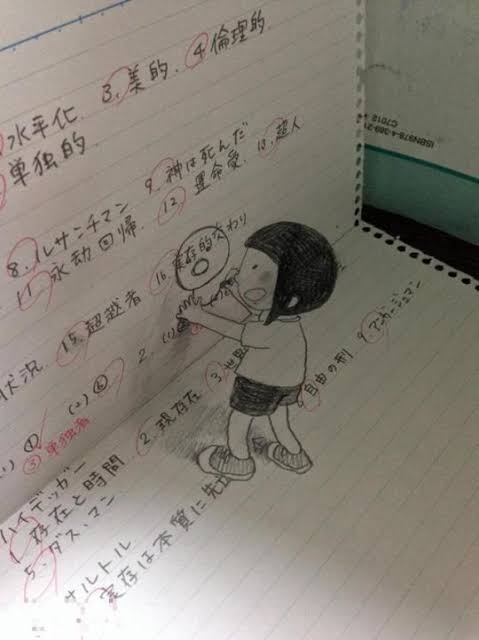 水平化. 3. 美的. 4. 倫理的.
単独的
8. ルサンチマン 9. 神は死んだ 10. 超人
11 永劫回帰. 12 運命愛.
状況. 15. 超越者 16. 実存的交わり
(1) ① (2) ⑥ 2. (1)
③ 単独者
ハイデッガー
1. 存在と時間 2. 現存在 3. 世
5. ダス・マン
サルトル
実存は本質に先
自由の刑 9. アンガージュマン
ISBN978-4-389-21
C7012